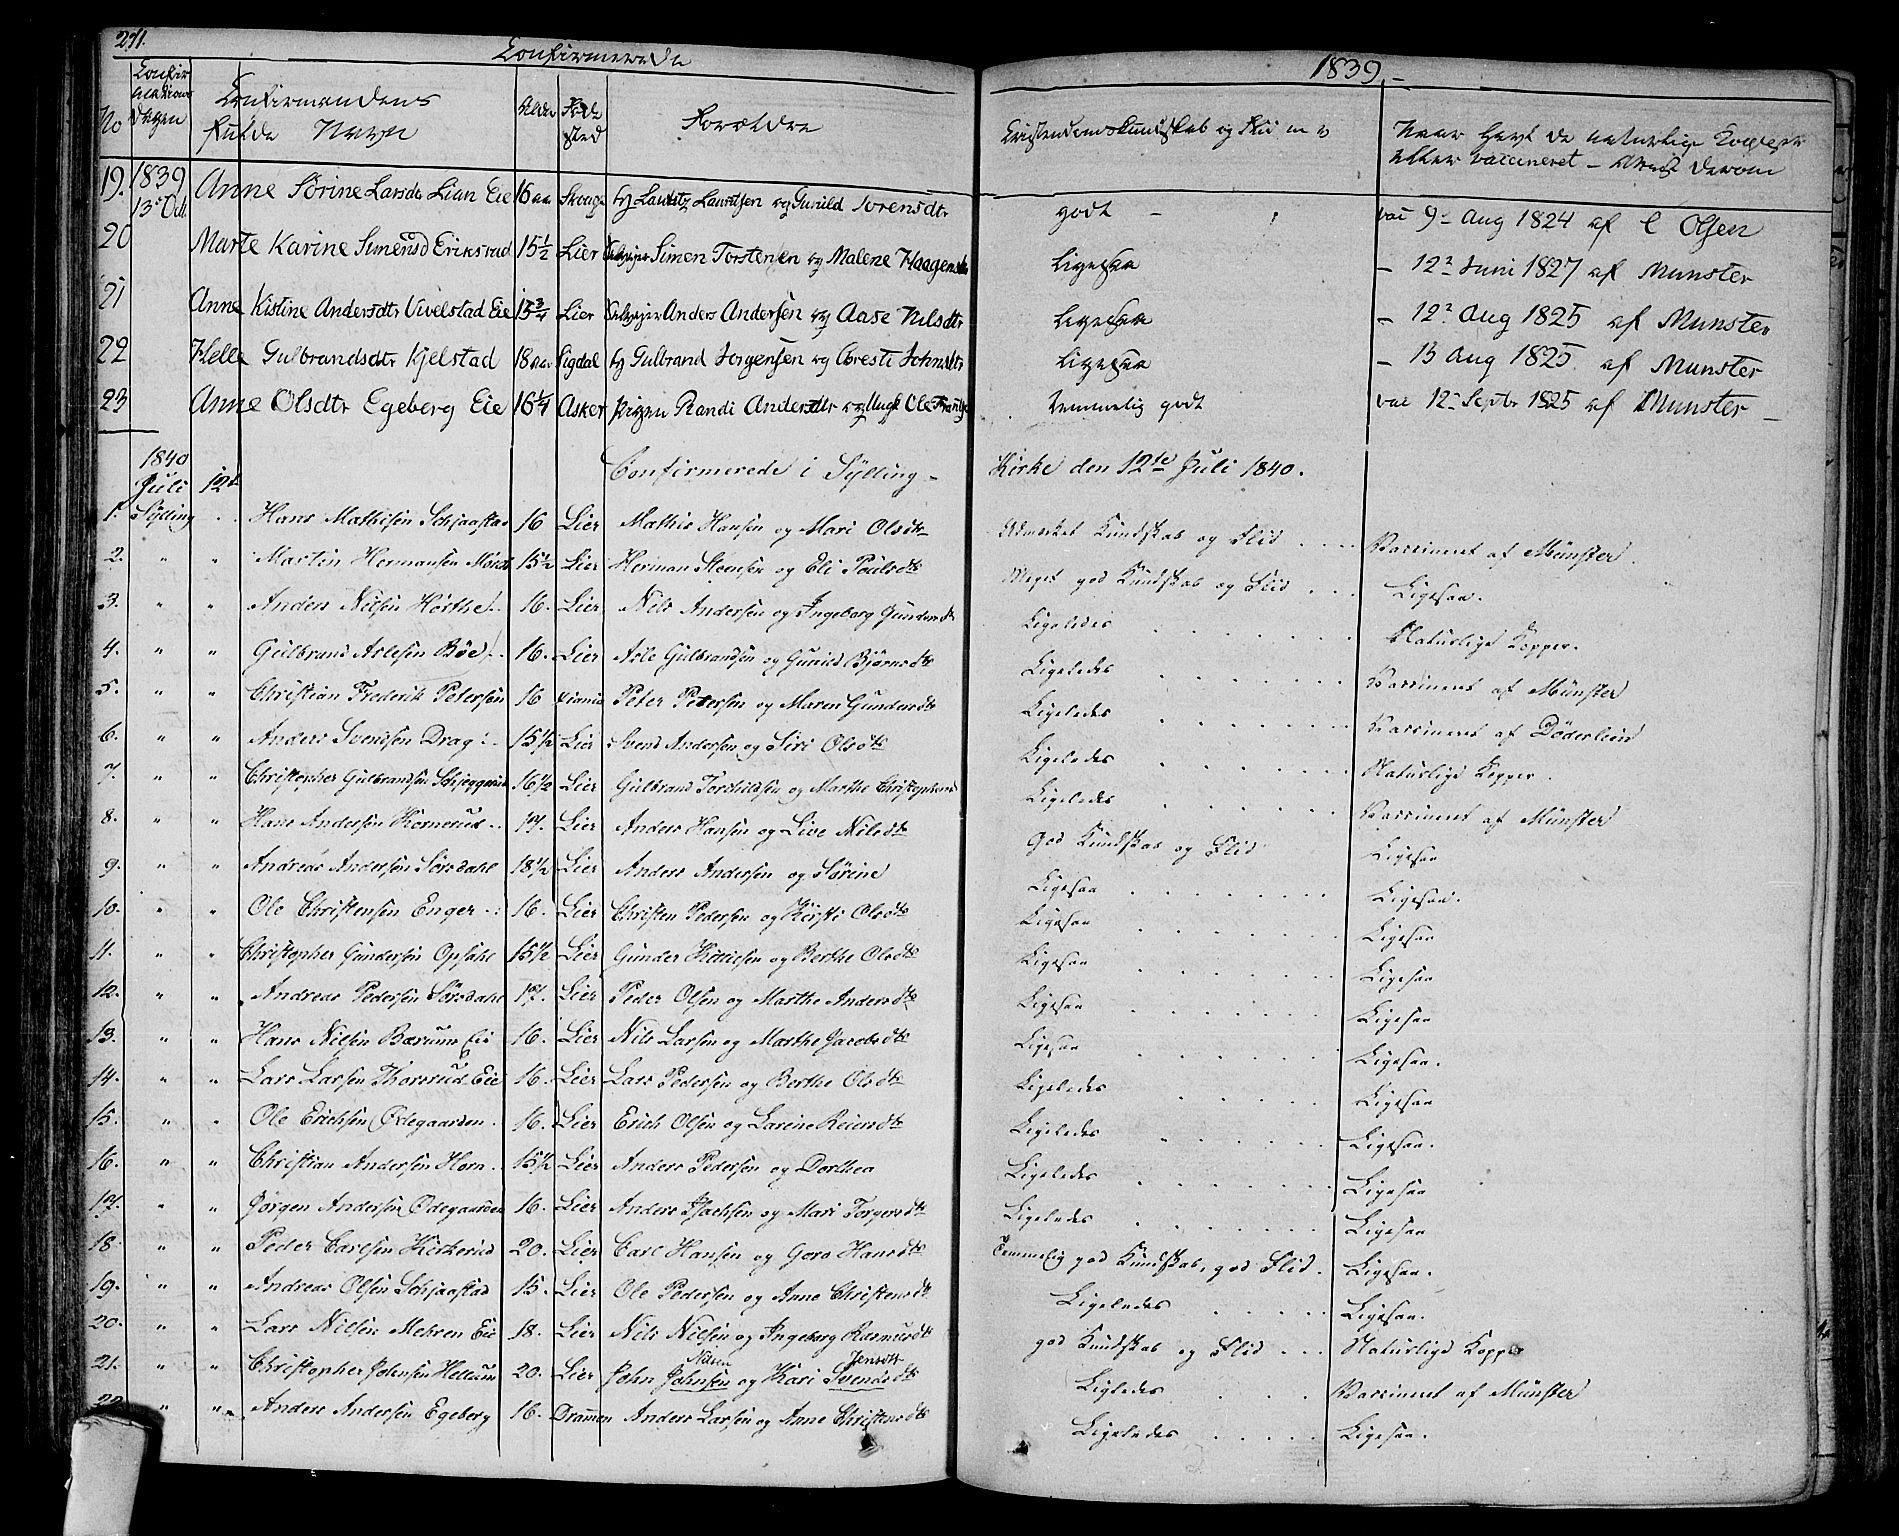 271.
Confirmerede
1839.-
No
Confirmations Dagen
Confirmandens fulde Navn
Alder
Føde sted
Forældre
Christendomskundskab og Flid m v
Naar havt de naturlige Kopper eller vaccineret - Attest derom
19. 1839 13 Oct Anne Sørine Larsdtr Lian Eie 16 aar Lauritz Lauritsen og Gunild Sorensdtr godt - vac 9 Aug 1824 af C Olsen
20 Marte Karine Simensd Eriksrud 15½ Lier Simen Torstensen og Malene Haagensdtr Ligesaa - 12 Juni 1827 af Munster
21 Anne Kistine Andersdtr Vivelstad Eie 15¾ Lier Anders Andersen og Aase Nilsdtr Ligesaa - 12 Aug 1825 af Munster
22 Helle Gulbrandsdtr Kjelstad 18 aar Sigdal Gulbrand Jorgensen og Johnsdtr Ligesaa - 13 Aug 1825 af Munster
23 Anne Olsdtr Egeberg Eie 16¼ Asker Pigen Randi Andersdtr og Ungk Ole temmelig godt vac 12 Septbr 1825 af Munster -
1840 Juli 12te
Confirmerede i Sylling - Kirke den 12te Juli 1840.
1. Sylling Hans Mathisen Schjaastad 16 Lier Mathis Hansen og Mari Olsdtr Udmærket Kundskab og Flid .... Vaccineret af Münster.
2. " " Martin Hermansen 15½ Lier Herman Steensen og Eli Poulsdtr Meget god Kundskab og Flid ... Ligesaa.
3. " " Anders Nilsen Hørthe 16. Lier Nils Andersen og Ingeborg Gundersdtr Ligeledes Naturlige Kopper.
4. " " Gulbrand Arlesen Bøe 16. Lier Arle Gulbrandsen og Gunild Bjørnsdtr Ligeledes Vaccineret af Münster
5. " " Christian Frederik Petersen 16 Xiania Peter Petersen og Maren Gundersdtr Ligeledes Vaccineret af Döderlein
6. " " Anders Svendsen Drag 15½ Lier Svend Andersen og Siri Olsdtr Ligeledes Naturlige Kopper.
7. " " Christopher Gulbrandsen Schjeggerud 16½ Lier Gulbrand Torchildsen og Marthe Christophersd Ligeledes Vaccineret af Münster
8. " " Hans Andersen Hornerud 17. Lier Anders Hansen og Live Nilsdtr God Kundskab og Flid Ligesaa
9. " " Andreas Andersen Sørsdahl 18½ Lier Anders Andersen og Sørine Ligesaa Ligesaa.
10. " " Ole Christensen Enger 16. Lier Christen Pedersen og Kirsti Olsdtr Ligesaa Ligesaa
11. " " Christopher Gundersen Opsahl 15½ Lier Gunder og Berthe Olsdtr Ligesaa Ligesaa
12. " " Andreas Pedersen Sørsdahl 17. Lier Peder Olsen og Marthe Andersdtr Ligesaa Ligesaa
13. " " Hans Nilsen Bærum Eie 16. Lier Nils Larsen og Marthe Jacobsdtr Ligesaa Ligesaa.
14. " " Lars Larsen Thorsrud Eie 16. Lier Lars Pedersen og Berthe Olsdtr Ligeledes Ligesaa
15. " " Ole Erichsen Ødegaarden. 16. Lier Erich Olsen og Larine Reiersdtr Ligeledes Ligesaa.
16. " " Christian Andersen Horn 15½ Lier Anders Pedersen og Dorthea Ligeledes Ligesaa
17. " " Jørgen Andersen Ødegaarden 16. Lier Anders Isachsen og Mari Torgersdtr Ligeledes Ligesaa
18. " " Peder Carlsen Kirkerud 20. Lier Carl Hansen og Goro Hansdtr Temmelig god Kundskab, god Flid. Ligesaa.
19. " " Andreas Olsen Schjaastad 15. Lier Ole Pedersen og Anne Christensdtr Ligeledes Ligesaa.
20. " " Lars Nilsen Mehren Eie 18. Lier Nils Nilsen og Ingeborg Rasmusdtr god Kundskab og Flid ... Naturlige Kopper
Nilsen Jensdtr
21. " " Christopher Johnsen Hellaum 20. Lier John Johnsen og Kari Svendsdtr Ligeledes Vaccineret af Münster
22. " " Anders Andersen Egeberg 16. Drammen Anders Larsen og Anne Christensdtr Ligeledes Ligesaa.